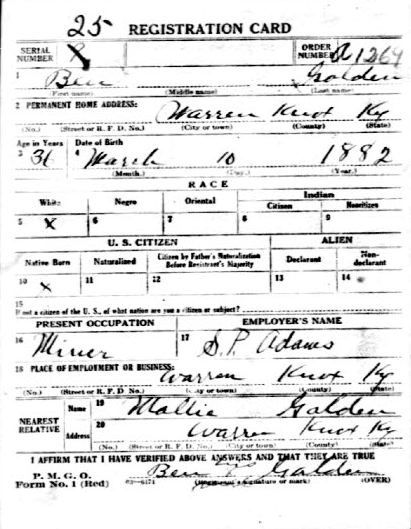 25 REGISTRATION CARD
SERIAL NUMBER ORDER NUMBER A1264
1 Ben Golden
(First name) (Middle name) (Last name)
2 PERMANENT HOME ADDRESS: Warren Knox Ky
(No.) (Street or R. F. D. No.) (City or town) (County) (State)
Age in Years Date of Birth
3 36 4 March 10 1882
(Month.) (Day.) (Year.)
RACE
White Negro Oriental Indian
Citizen Noncitizen
5 X 6 7 8 9
U. S. CITIZEN ALIEN
Native Born Naturalized Citizen by Father's Naturalization Before Registrant's Majority Declarant Non-declarant
10 X 11 12 13 14
15
If not a citizen of the U. S., of what nation are you a citizen or subject?
PRESENT OCCUPATION EMPLOYER'S NAME
16 Miner 17 S. P. Adams
18 PLACE OF EMPLOYMENT OR BUSINESS: Warren Knox Ky
(No.) (Street or R. F. D. No.) (City or town) (County) (State)
NEAREST RELATIVE Name 19 Mollie Golden
Address 20 Warren Knox Ky
(No.) (Street or R. F. D. No.) (City or town) (County) (State)
I AFFIRM THAT I HAVE VERIFIED ABOVE ANSWERS AND THAT THEY ARE TRUE
Ben Golden
P. M. G. O.
Form No. 1 (Red) 03-6171 (Registrant's signature or mark) (OVER)